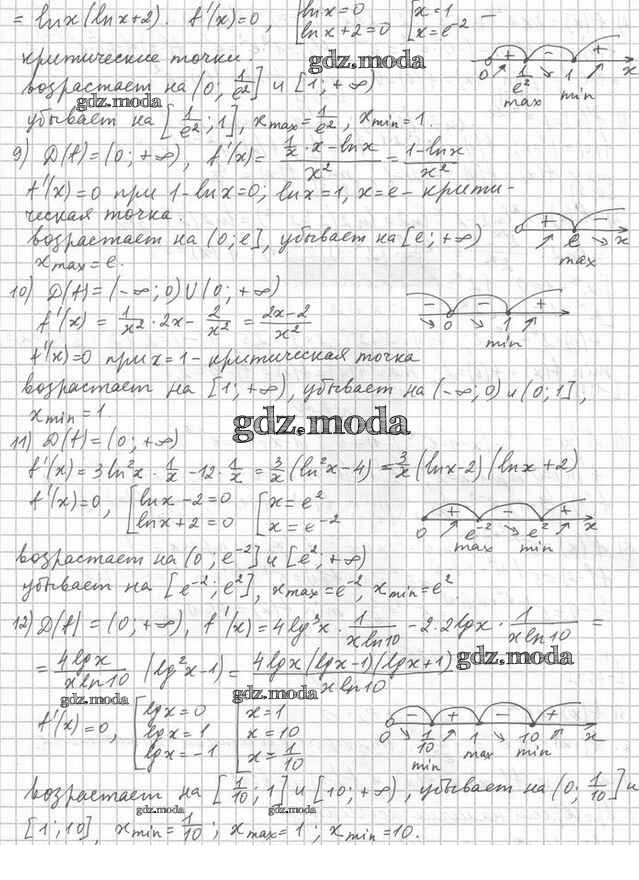 = ln x (ln x + 2). f'(x)=0, [ ln x = 0 [ x = 1 –
ln x + 2 = 0 x = e⁻²
критические точки.
+ – +
0 1/e² 1 x
max min
возрастает на (0; 1/e²] и [1; +∞)
gdz.moda gdz.moda
убывает на [1/e²; 1], x max = 1/e², x min = 1.
9) D(f) = (0; +∞), f'(x) = (1/x · x – ln x)/x² = (1 – ln x)/x²
f'(x) = 0 при 1 – ln x = 0; ln x = 1, x = e – крити-
ческая точка.
+ –
0 e x
max
возрастает на (0; e], убывает на [e; +∞)
x max = e.
10) D(f) = (–∞; 0) U (0; +∞)
– – +
0 1 x
min
f'(x) = 1/x² · 2x – 2/x² = (2x – 2)/x²
f'(x) = 0 при x = 1 – критическая точка
возрастает на [1; +∞), убывает на (–∞; 0) и (0; 1],
x min = 1
gdz.moda
11) D(f) = (0; +∞)
f'(x) = 3 ln²x · 1/x – 12 · 1/x = 3/x (ln²x – 4) = 3/x (ln x – 2) (ln x + 2)
f'(x) = 0, [ ln x – 2 = 0 [ x = e²
ln x + 2 = 0 x = e⁻²
+ – +
0 e⁻² e² x
max min
возрастает на (0; e⁻²] и [e²; +∞)
убывает на [e⁻²; e²], x max = e⁻², x min = e².
12) D(f) = (0; +∞), f'(x) = 4 lg³x · 1/(x ln 10) – 2 · 2 lg x · 1/(x ln 10) =
= 4 lg x/(x ln 10) (lg²x – 1) = 4 lg x (lg x – 1)(lg x + 1)/(x ln 10)
gdz.moda
gdz.moda gdz.moda
f'(x) = 0, [ lg x = 0 [ x = 1
lg x = 1 x = 10
lg x = –1 x = 1/10
– + – +
0 1/10 1 10 x
min max min
возрастает на [1/10; 1] и [10; +∞), убывает на (0; 1/10] и
gdz.moda gdz.moda
[1; 10], x min = 1/10; x max = 1; x min = 10.